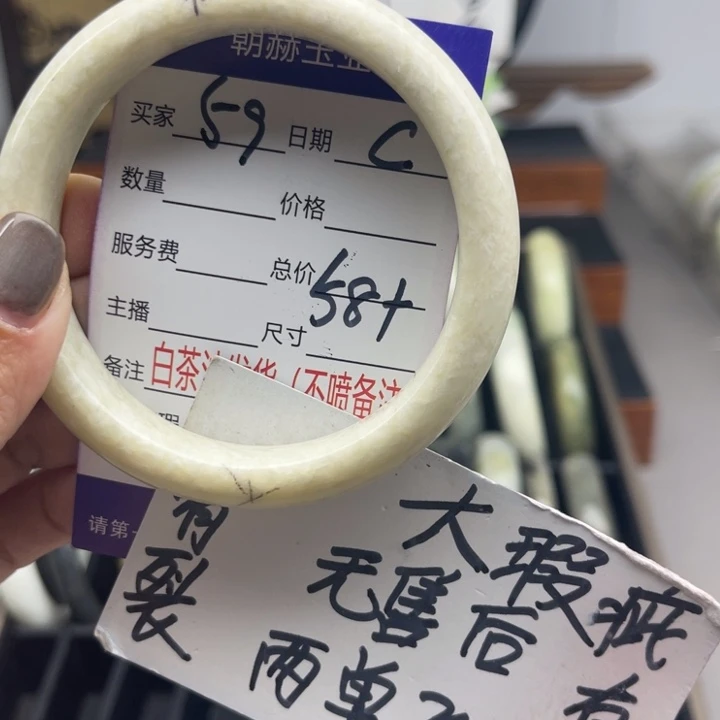 朝赫玉业
买家 59 日期 C
数量 价格
服务费 总价 58+
主播 尺寸
备注 白茶油发货(不喷备注
瑕
请第一
有裂
大瑕疵
无售后
两单
有